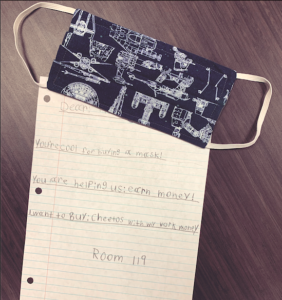 Dean
You're cool for buying a mask!
You are helping us earn money!
I want to buy cheetos with my work money
Room 119